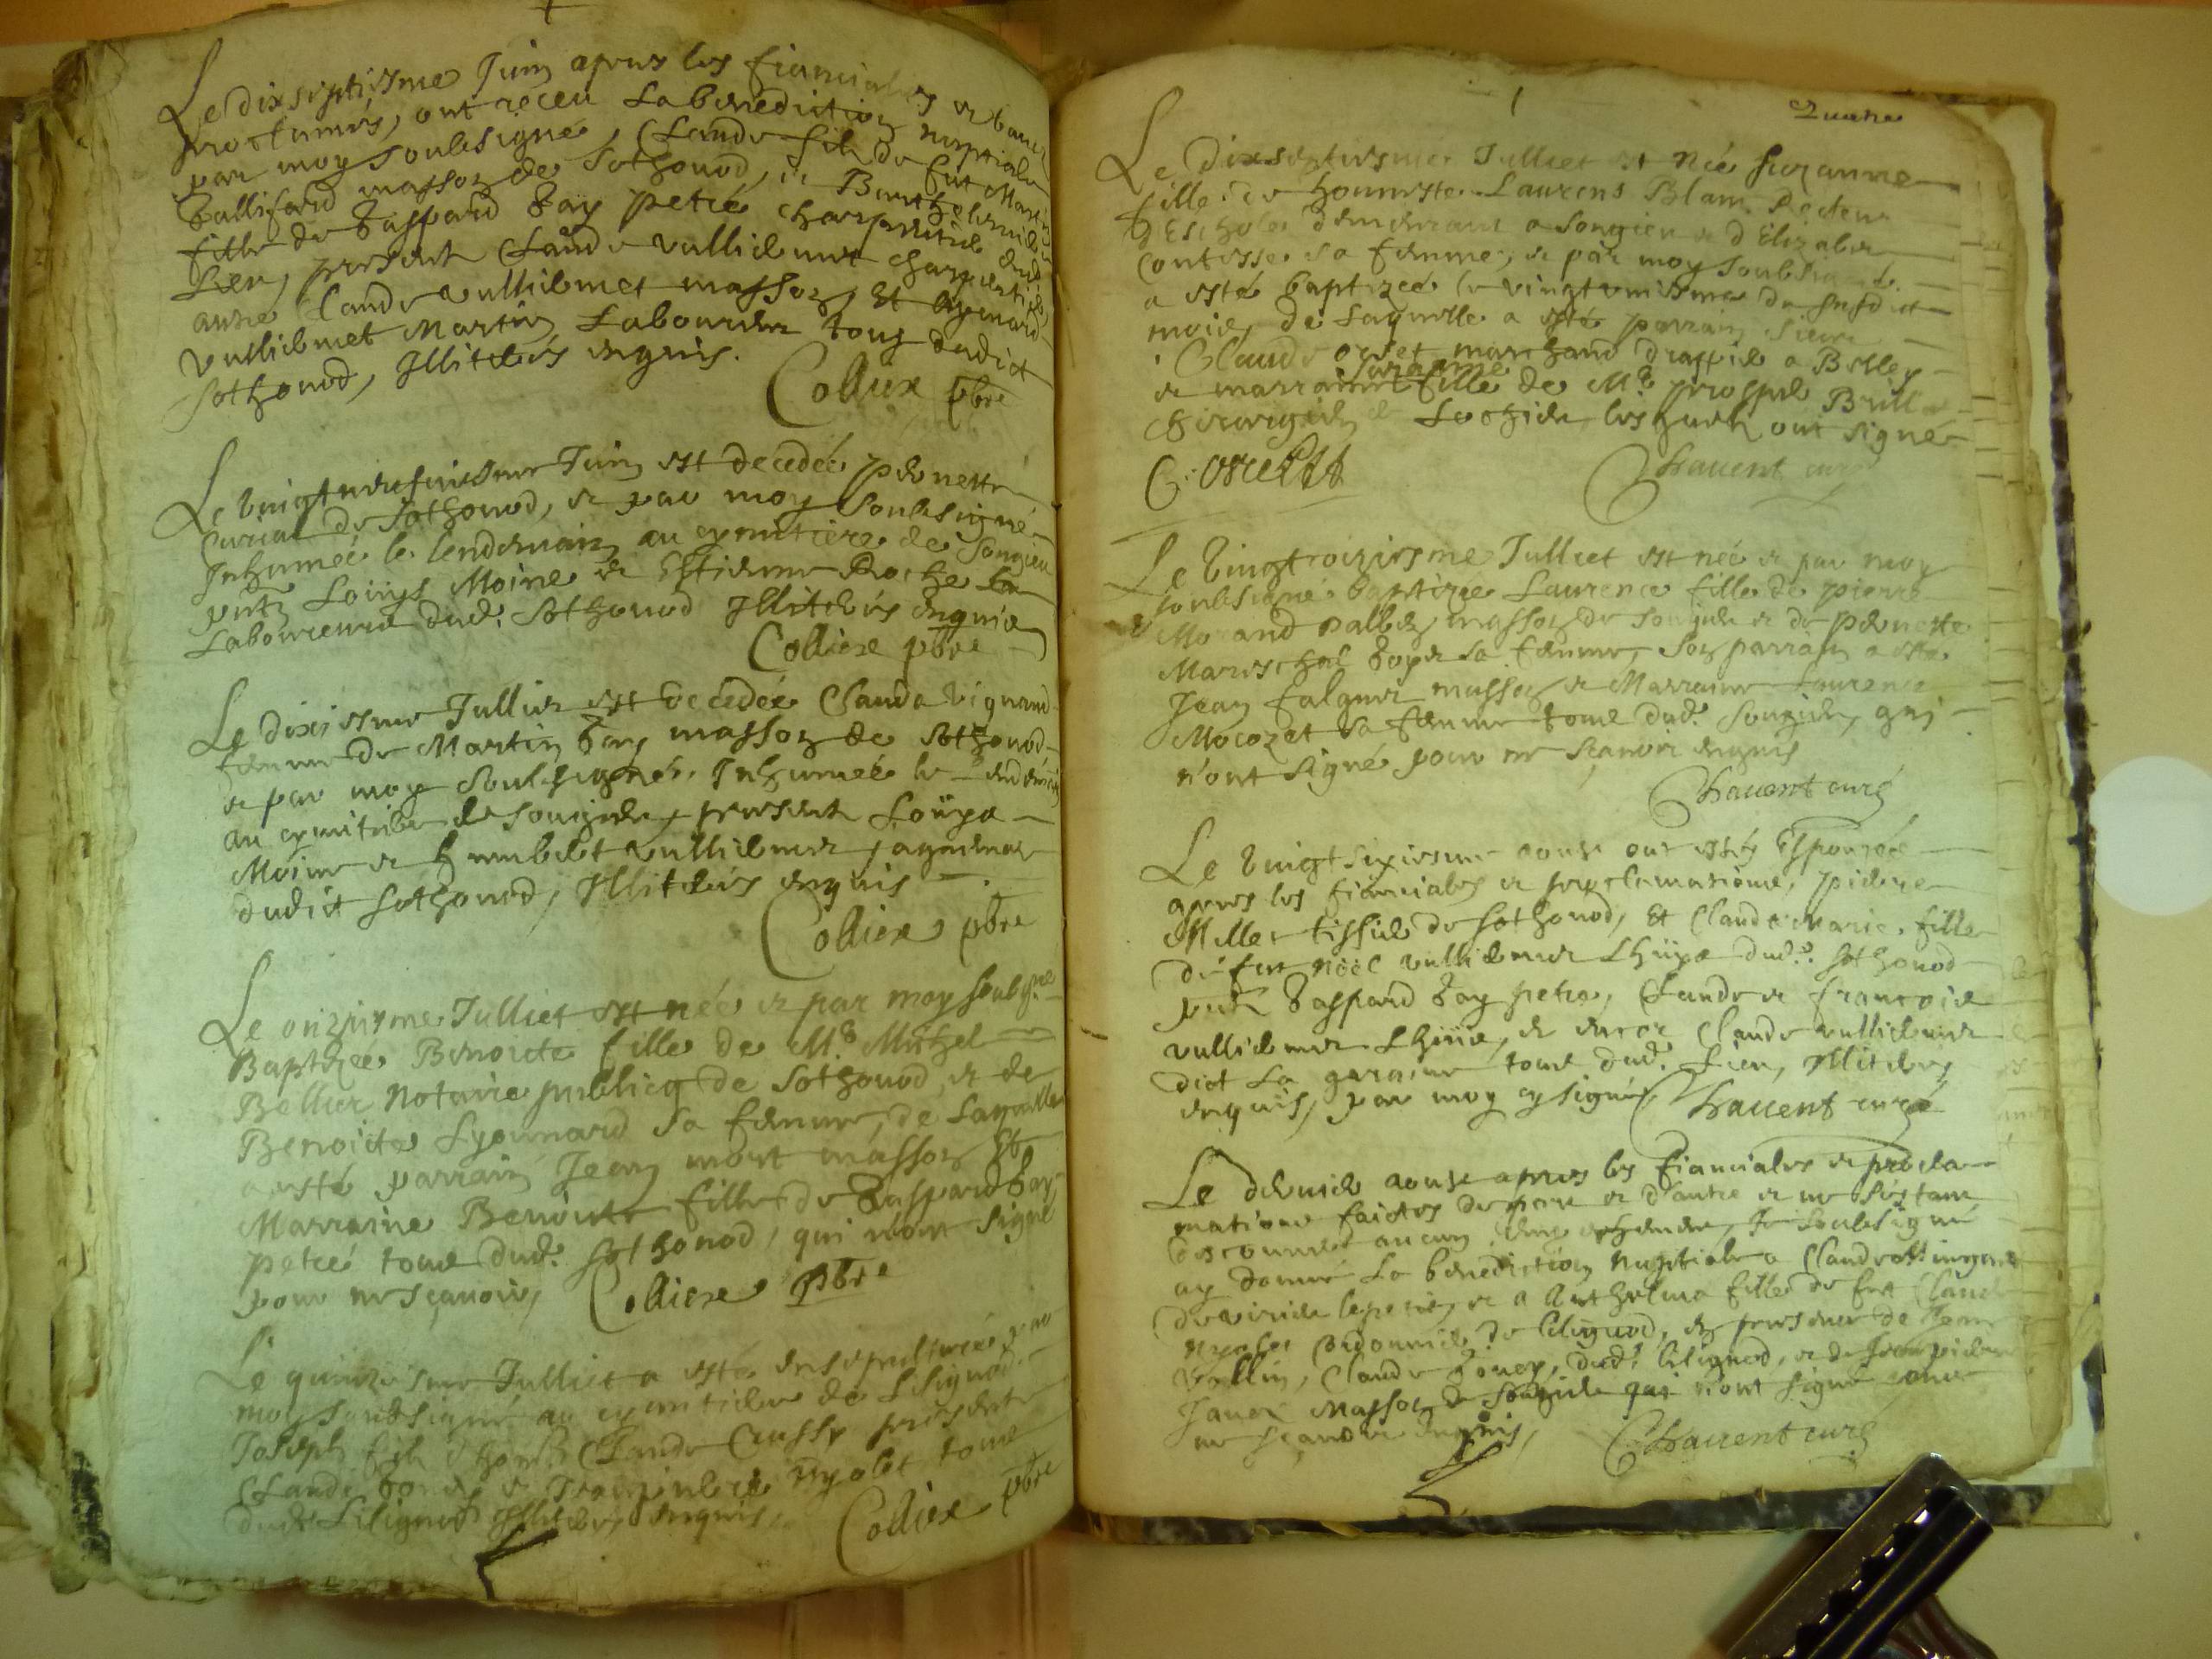 Le dixseptiesme Juin apres les fiancialles et bancz
proclamés, ont receu La benediction nuptiale
par moy soubsigné, Claude fils de fut Martin
Ballifard masson de Sothonod, et Barthelemie
fille de Gaspard Gay petré charpentier dud
Lieu, present Claude vulliemet charpentier
autre Claude vulliemet masson, Et Aymard
vulliemet Martin Laboureur tous dudict
Sothonod, Illiterés enquis.
Colliex pbre
Le vingtneufviesme Juin est decedée pernette
Curial de Sothonod, et par moy soubsigné
Inhumée le lendemain au cymitiere de Songieu
pnts Loüys Moine et Estienne Roche
Laboureurs dud. Sothonod Illiterés enquis
Colliex pbre
Le dixiesme Jullier est decedée Clauda
femme de Martin Gay masson de Sothonod
et par moy soubsigné, Inhumée le Lendemain
au cymitiere de Songieu, presents Loüys
Moine et humbert vulliemet
dudict Sothonod, Illiterés enquis
Colliex pbre
Le onziesme Julliet est née et par moy soubsigné
Baptizée Benoicte fille de M.e Michel
Bellier Notaire publicq de Sothonod, et de
Benoicte Lyonnard sa femme, de Laquelle
a esté parrain Jean mont masson Et
Marraine Benoicte fille de Gaspard Gay
petré tous dud. Sothonod, qui n'ont signé
pour ne sçavoir, Colliex pbre
Le quinziesme Julliet a esté ensepulturé par
moy soubsigné au cymitiere de Lilignod
Joseph fils d'hon. Claude Crussy presents
Claude Goney et Nyolet tous
dud. Lilignod Illiterés enquis,
Colliex pbre
Quatre
Le dixseptiesme Julliet est née suzanne
fille de honneste Laurens Blanc Recteur
d'Eschole demeurant a Songieu et d'Elizabet
Contesse sa femme, et par moy soubsigné
a esté baptizée le vingtuniesme du susdict
mois, de Laquelle a esté parrain Sieur
Claude Orset marchand drappier a Belley
suzanne
et marraine fille de M.e prosper Brillat
chirurgien de Lochieu, lesquels ont signé
C: Orsett
Chauent curé
Le vingtroiziesme Julliet est née et par moy
soubsigné baptizée Laurence fille de pierre
Morand masson de Songieu et de pernette
Mareschal Goyet sa femme, son parrain a esté
Jean falquet masson et Marraine Laurence
Mocozet sa femme tous dud. Songieu, qui
n'ont signé pour ne sçavoir enquis
Chauent curé
Le vingt sixiesme aoust ont estés Espousés
apres les fiancialles et proclamations, pierre
Millet tissier de Sothonod, Et Claude Marie fille
de fut Nöel vulliemet Lhüya dud. Sothonod
pnts Gaspard Gay petre, Claude et francois
vulliemet Lhüya, et encor Claude vulliemet
dict La garaine tous dud. Lieu, Illiterés
enquis, par moy cy signé Chauent curé
Le dernier aoust apres les fiancialles et procla-
mations faictes de part et d'autre et ne s'estant
descouvert aucun empeschement, Je soubsigné
ay donné La benediction nuptiale a Claude
de virieu lepetit, et a Anthelma fille de fut Claude
Nyolet Cordonnier de Lilignod, en presence de Jean
Vallin, Claude Goney, dud. Lilignod, et de
Janex Masson de Songieu qui n'ont signé pour
ne sçavoir enquis,
Chauent curé